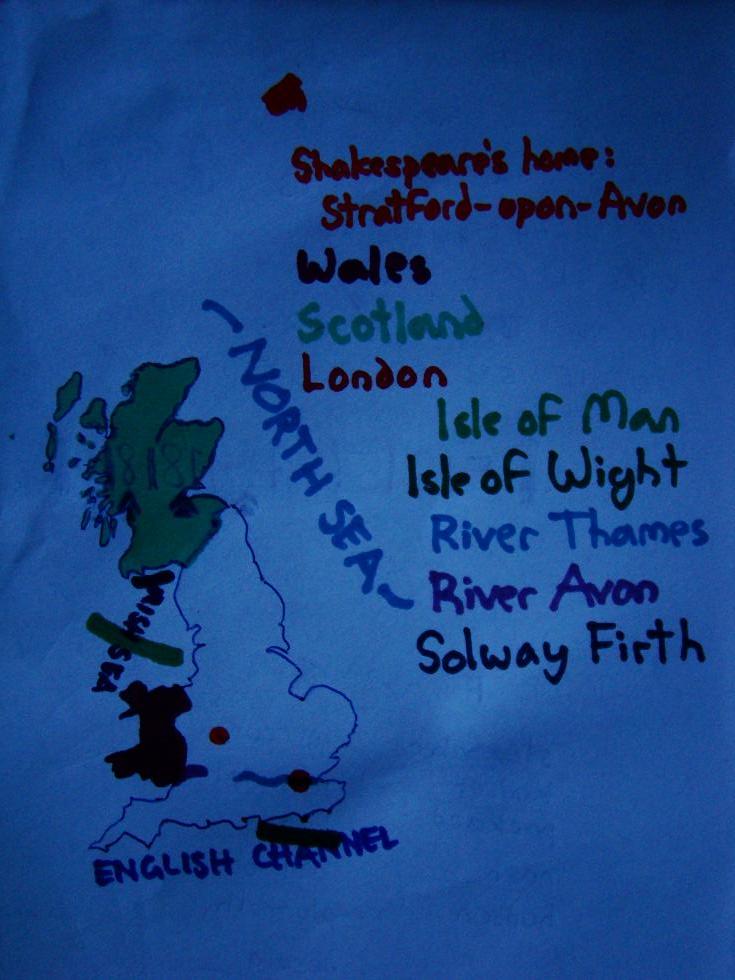 Shakespeare's home:
Stratford-upon-Avon
Wales
Scotland
London
Isle of Man
Isle of Wight
River Thames
River Avon
Solway Firth
NORTH SEA
IRISH SEA
ENGLISH CHANNEL